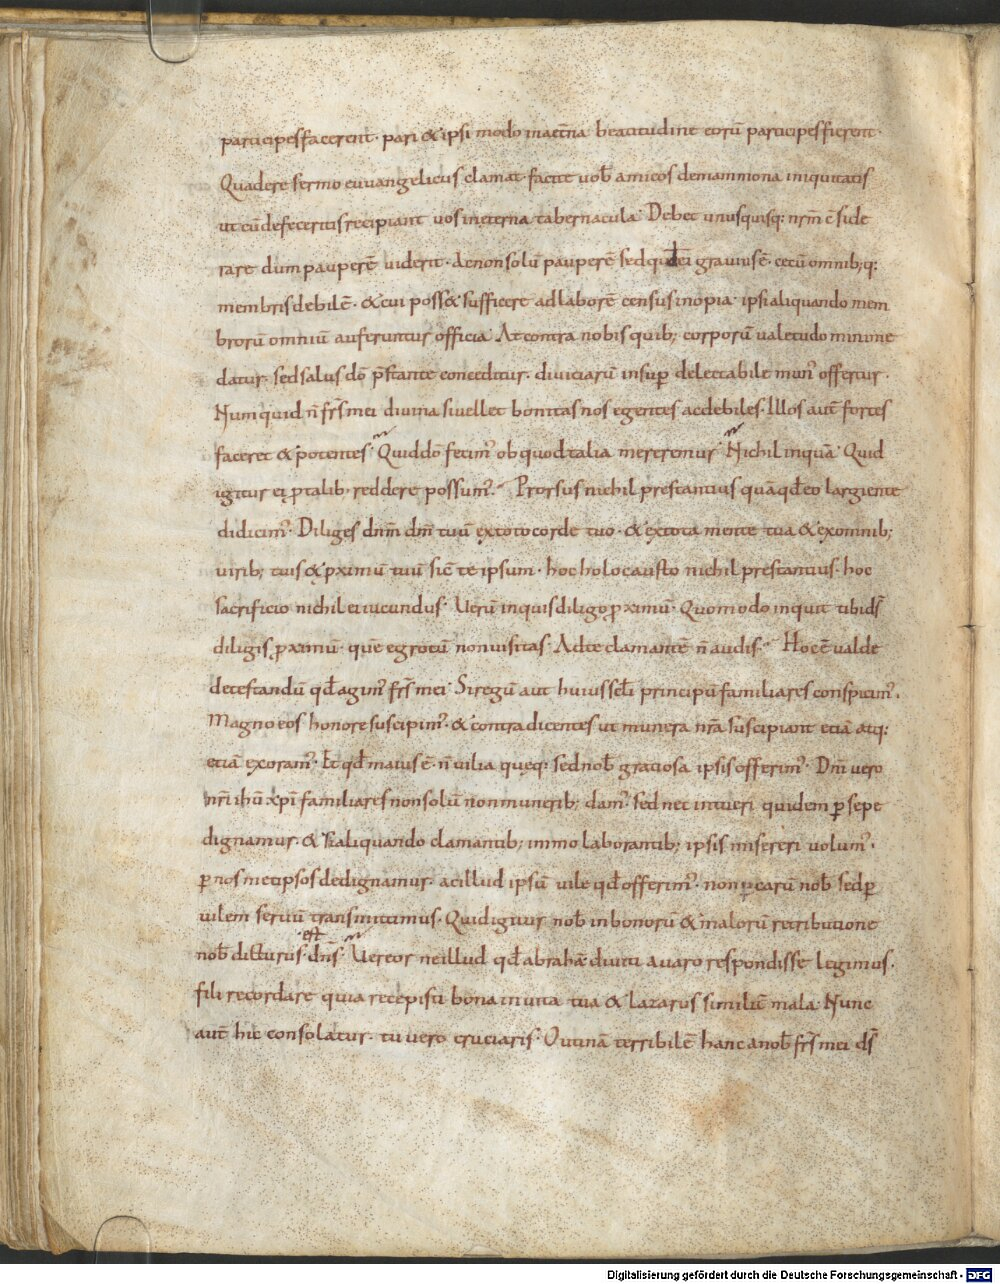 participesfacerent· pari &ipsi modo inaet̄na beatitudine eorū participesfierent·
Quadere sermo euuangelicus clamat· facite uob̄ amicos demammona iniquitatis
ut cū defeceritis recipiant uos inęterna tabernacula· Debet unusquisq; nr̄m c̄side
rare dum pauperē uiderit· &
membrisdebilē· &cui poss& sufficere adlaborē census inopia· ipsi aliquando mem
brorū omniū auferuntur officia· At contra nobis quib; corporū ualetudo minime
datur· sedsalus dō p̄stante conceditur· diuiciarū insup delectabile mun' offertur·
Numquid n̄ fr̄s mei diuina si uellet bonitas nos egentes ac debiles· Illos aut̄ fortes
faceret & potentes· Quid dō fecim' ob quod talia meremur· Nichil inquā· Quid
igitur ei p talib; reddere possum'· Prorsus nichil prestantius quā qd̄ eo largiente
didicim'· Diliges dn̄m dm̄ tuū extoto corde tuo· & extota mente tua & exomnib;
uirib; tuis & pximū tuū sic̄ te ipsum· hoc holocausto nichil prestantius· hoc
sacrificio nichil ei iucundus· Uerū inquis diligo pximū· Quomodo inquit tibi ds̄
diligis pximū· quē egrotū non uisitas· Adte clamantē n̄ audis· Hoc ē ualde
detestandū qd̄ agim' fr̄s mei· Si regū aut huius sc̄li principū familiares conspicim'·
Magno eos honore suscipim'· & contra dicentes ut munera nr̄a suscipiant etiā atq;
etiā exoram'· Et qd̄ maius ē· n̄ uilia queq; sed nob̄ graciosa ipsis offerim'· Dn̄i uero
nr̄i ihū xp̄i familiares non solū non munerib; dam'· sed nec intueri quidem p sepe
dignamur· & si aliquando clamantib; immo laborantib; ipsis misereri uolum'·
p nos met ipsos dedignamur· ac illud ipsū uile qd̄ offerim'· non p carū nob̄ sed p
uilem seruū transmittimus· Quid igitur nob̄ inbonorū & malorū retributione
nob̄ dicturus· est dn̄s· Uereor ne illud qd̄ abrahā diuiti auaro respondisse legimus·
fili recordare quia recepisti bona in uita tua & lazarus similit̄ mala· Nunc
aut̄ hic consolatur· tu uero cruciaris· O utinā terribilē hanc a nob̄ fr̄s mei ds̄
Digitalisierung gefördert durch die Deutsche Forschungsgemeinschaft - DFG